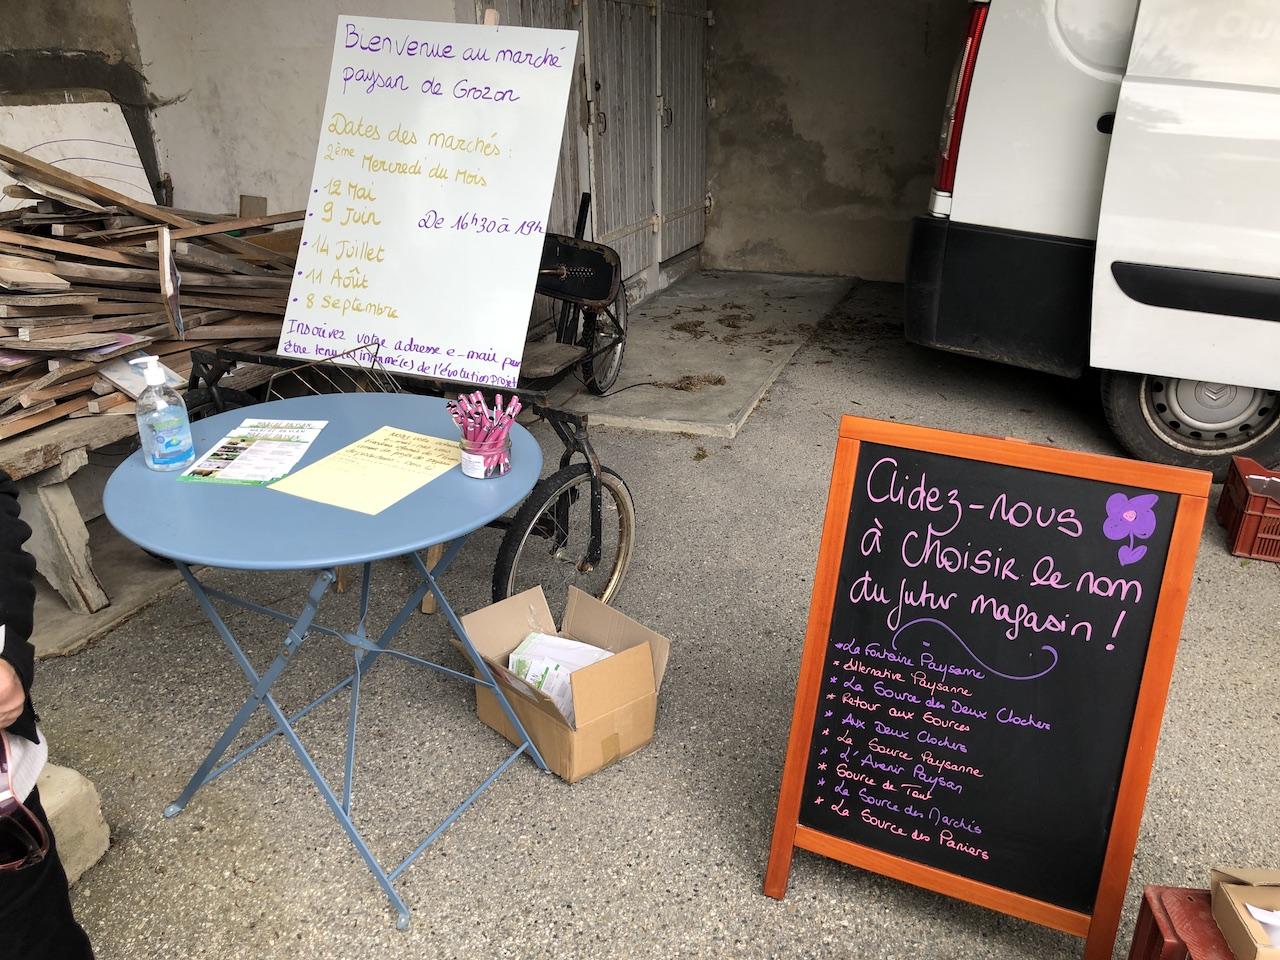 Bienvenue au marché
paysan de Grozon
Dates des marchés :
2ème Mercredi du Mois
• 12 Mai
• 9 Juin
De 16h30 à 19h
• 14 Juillet
• 11 Août
• 8 Septembre
Inscrivez votre adresse e-mail pour
être tenu(e) informé(e) de l'évolution projet
Aidez-nous
à choisir le nom
du futur magasin !
* La Fontaine Paysanne
* Alternative Paysanne
* La Source des Deux Clochers
* Retour aux Sources
* Aux Deux Clochers
* La Source Paysanne
* L'Avenir Paysan
* Source de Tout
* La Source des Marchés
* La Source des Paniers